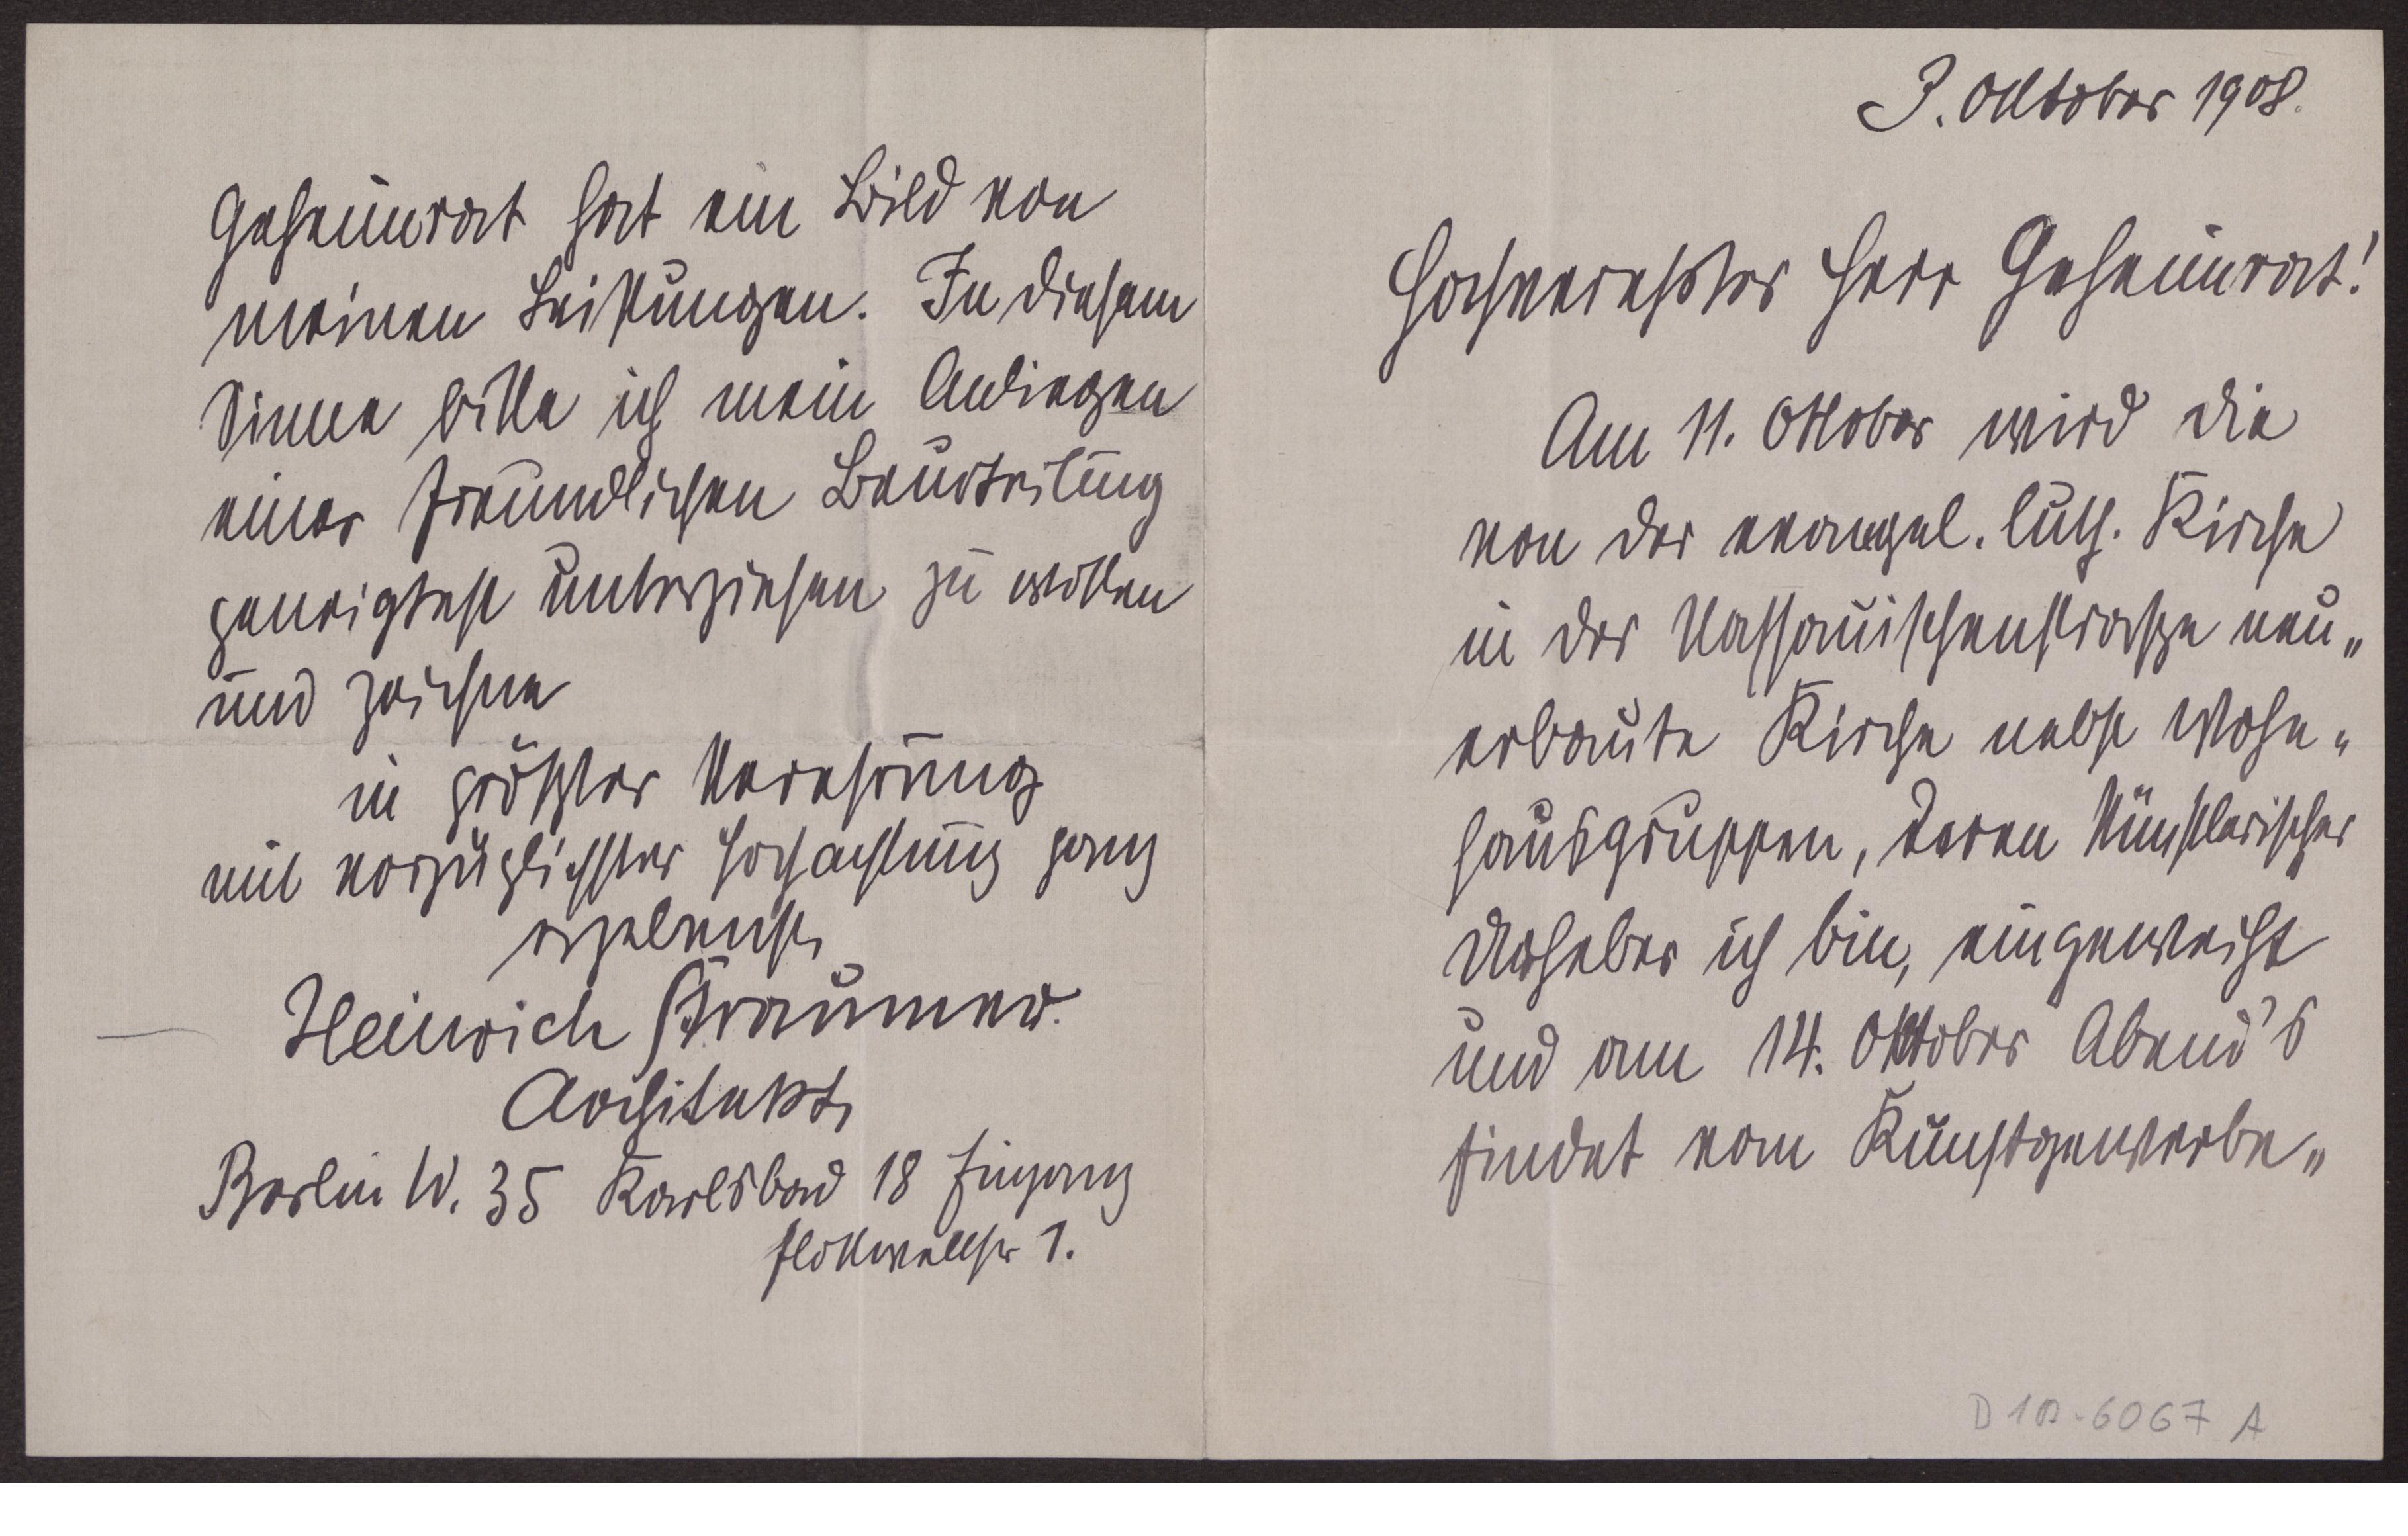 3. Oktober 1908.
Hochverehrter Herr Geheimrat!
Am 11. Oktober wird die
von der evangel. luth. Kirche
in der Nassauischenstrasze neu„
erbaute Kirche nebst Wohn„
hausgruppen, deren künstlerischer
Urheber ich bin, eingeweiht
und am 14. Oktober Abend's
findet vom Kunstgewerbe„
D 1D-6067 A
Geheimrat hat ein Bild von
meinen Leistungen. In diesem
Sinne bitte ich mein Anliegen
einer freundlichen Beurteilung
geneigtest unterziehen zu wollen
und zeichne
in größter Verehrung
mit vorzüglichster Hochachtung ganz
ergebenst
Heinrich Straumer.
Architekt
Berlin W. 35 Karlsbad 18 Eingang
Flottwellstr 1.